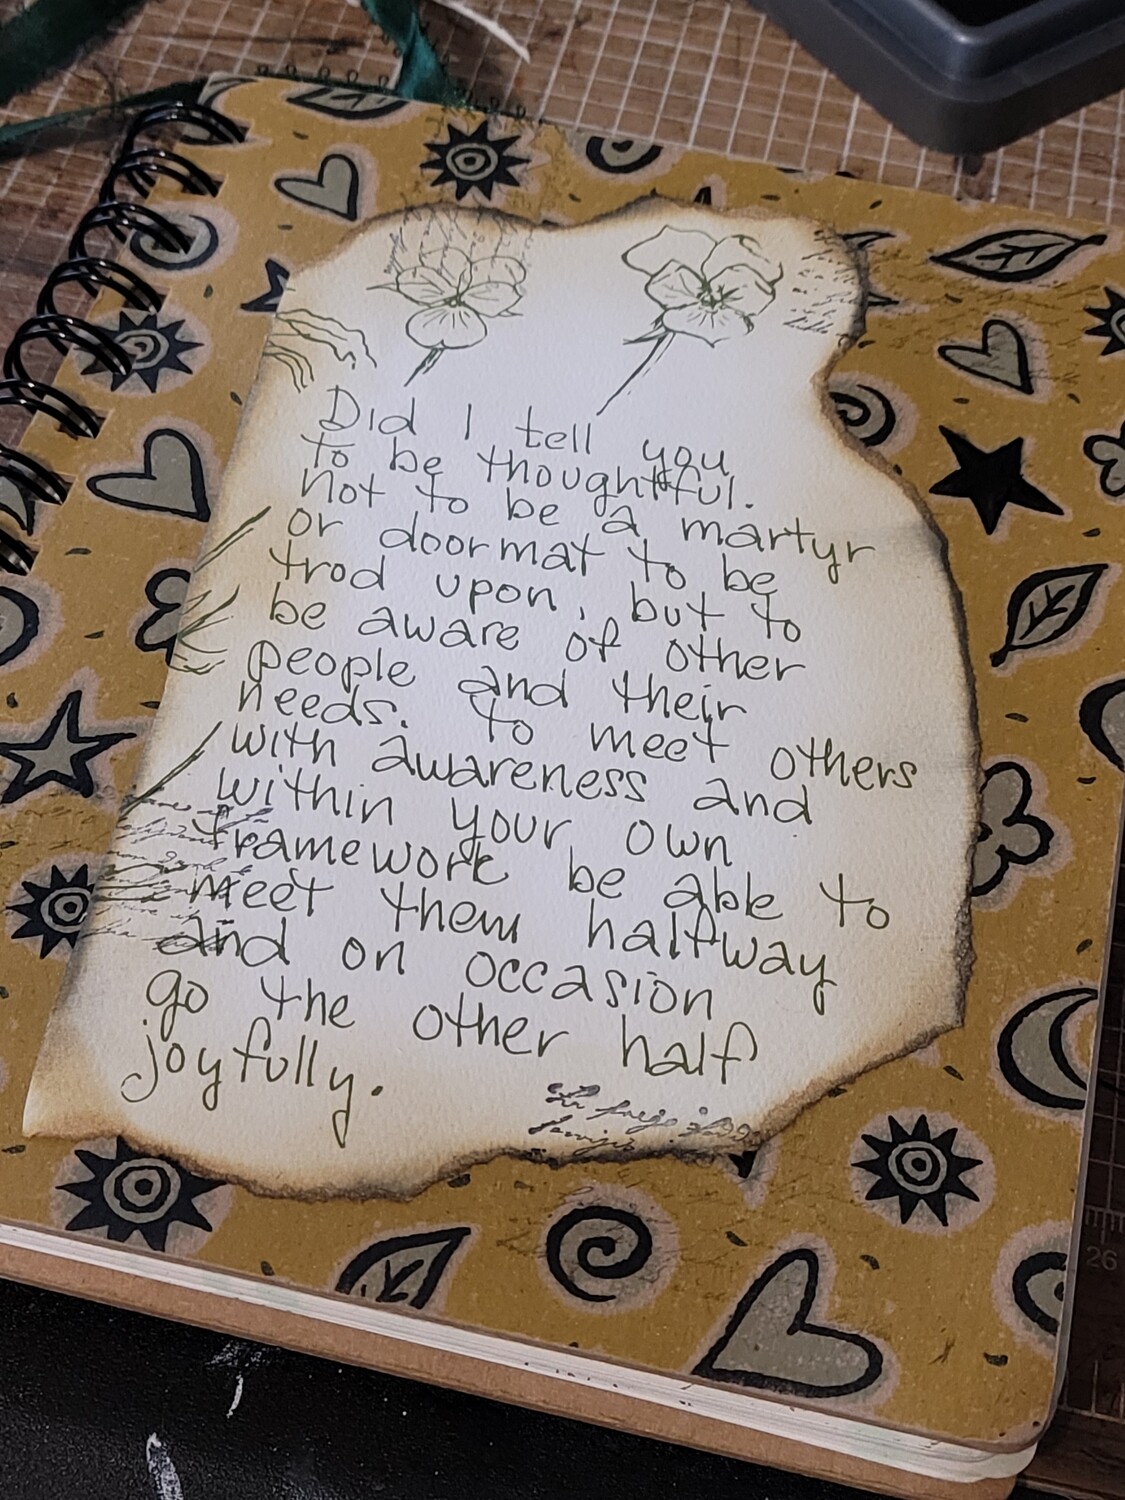 Did I tell you
to be thoughtful.
not to be a martyr
or doormat to be
trod upon, but to
be aware of other
people and their
needs. To meet others
with awareness and
within your own
framework be able to
meet them halfway
and on occasion
go the other half
joyfully.
26